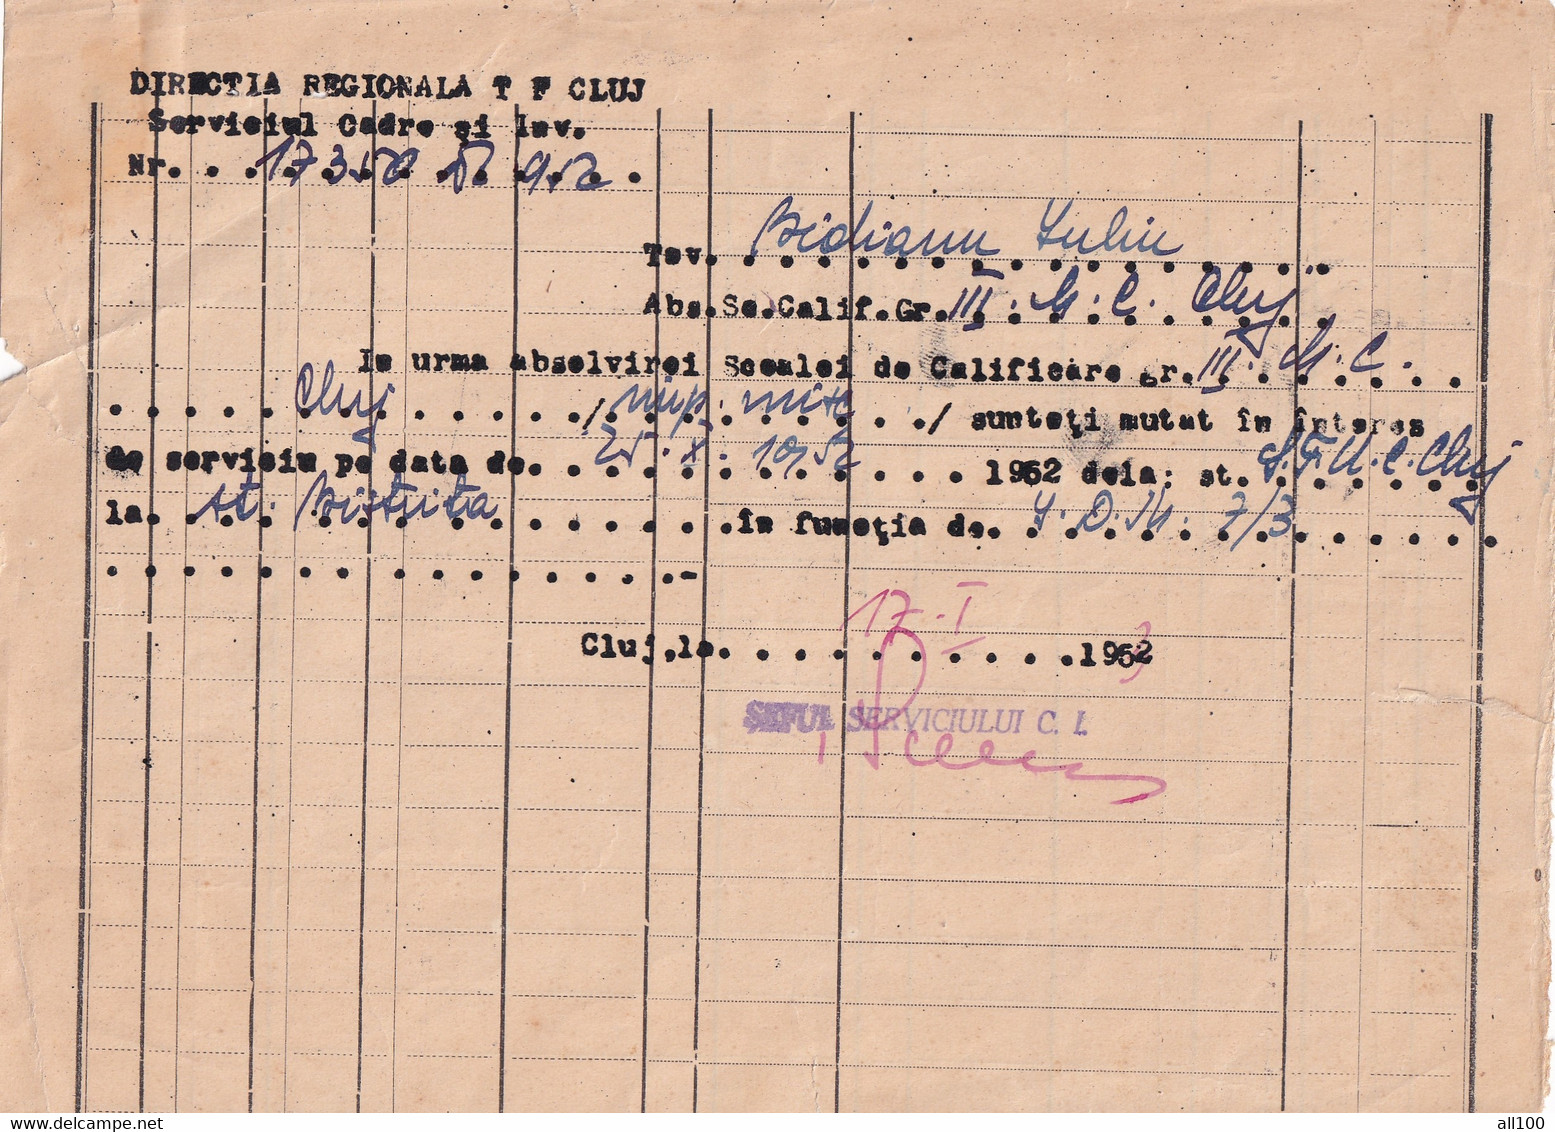 DIRECTIA REGIONALA T F CLUJ
Serviciul Cadre și Inv.
Nr. 17350 952
Tov. Bidianu Iuliu
Abs.Sc.Calif.Gr. III. M. C. Cluj
In urma absolvirei Scoalei de Calificare gr. III. M. C.
Cluj / mip. mitc / sunteți mutat în interes
de serviciu pe data de 25. X. 1952 1952 dela: st. S.F.U.C. Cluj
la st. Bistrita în funcția de I. D. M. 7/3
Cluj, la 17. I 1953
SEFUL SERVICIULUI C. I.
all100
delcampe.net